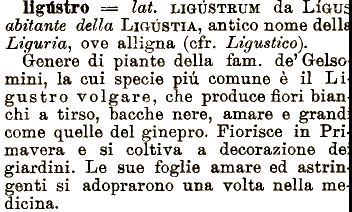 ligústro = lat. LIGÚSTRUM da LÍGUS
abitante della LIGÚSTIA, antico nome della
Liguria, ove alligna (cfr. Ligustico).
Genere di piante della fam. de' Gelso-
mini, la cui specie piú comune è il Li-
gustro volgare, che produce fiori bian-
chi a tirso, bacche nere, amare e grandi
come quelle del ginepro. Fiorisce in Pri-
mavera e si coltiva a decorazione dei
giardini. Le sue foglie amare ed astrin-
genti si adoprarono una volta nella me-
dicina.